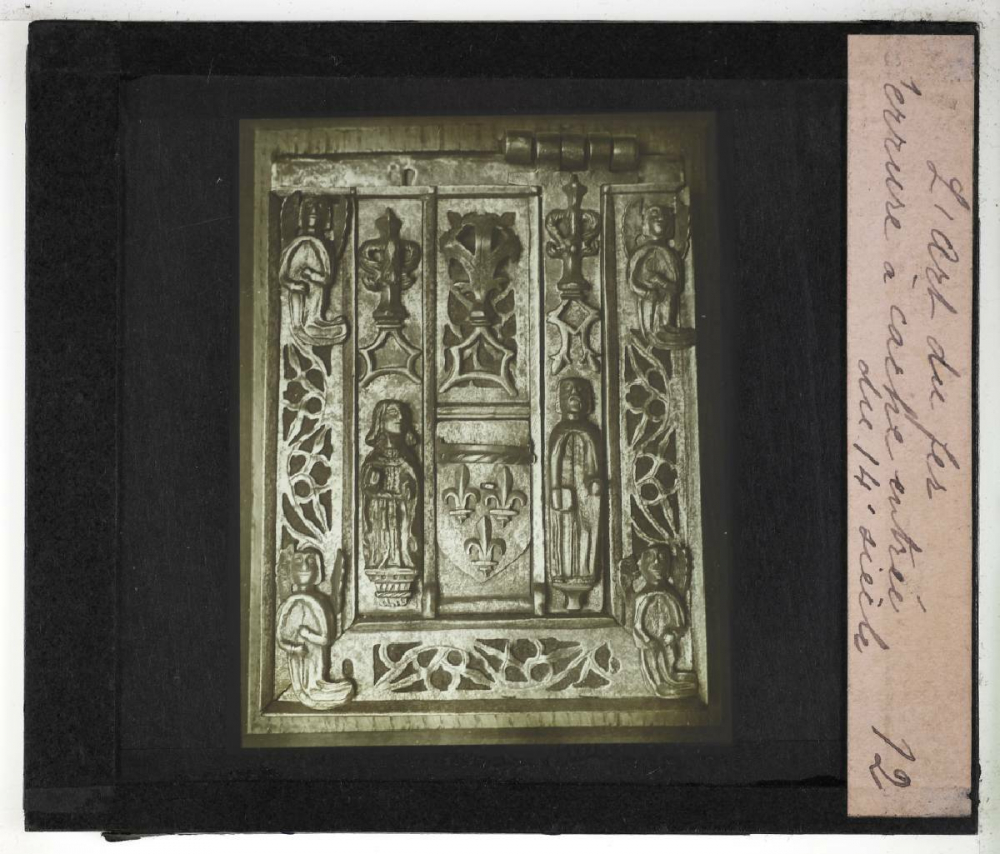 L'art du fer
Serrure à cache entrée
du 14e siècle
12